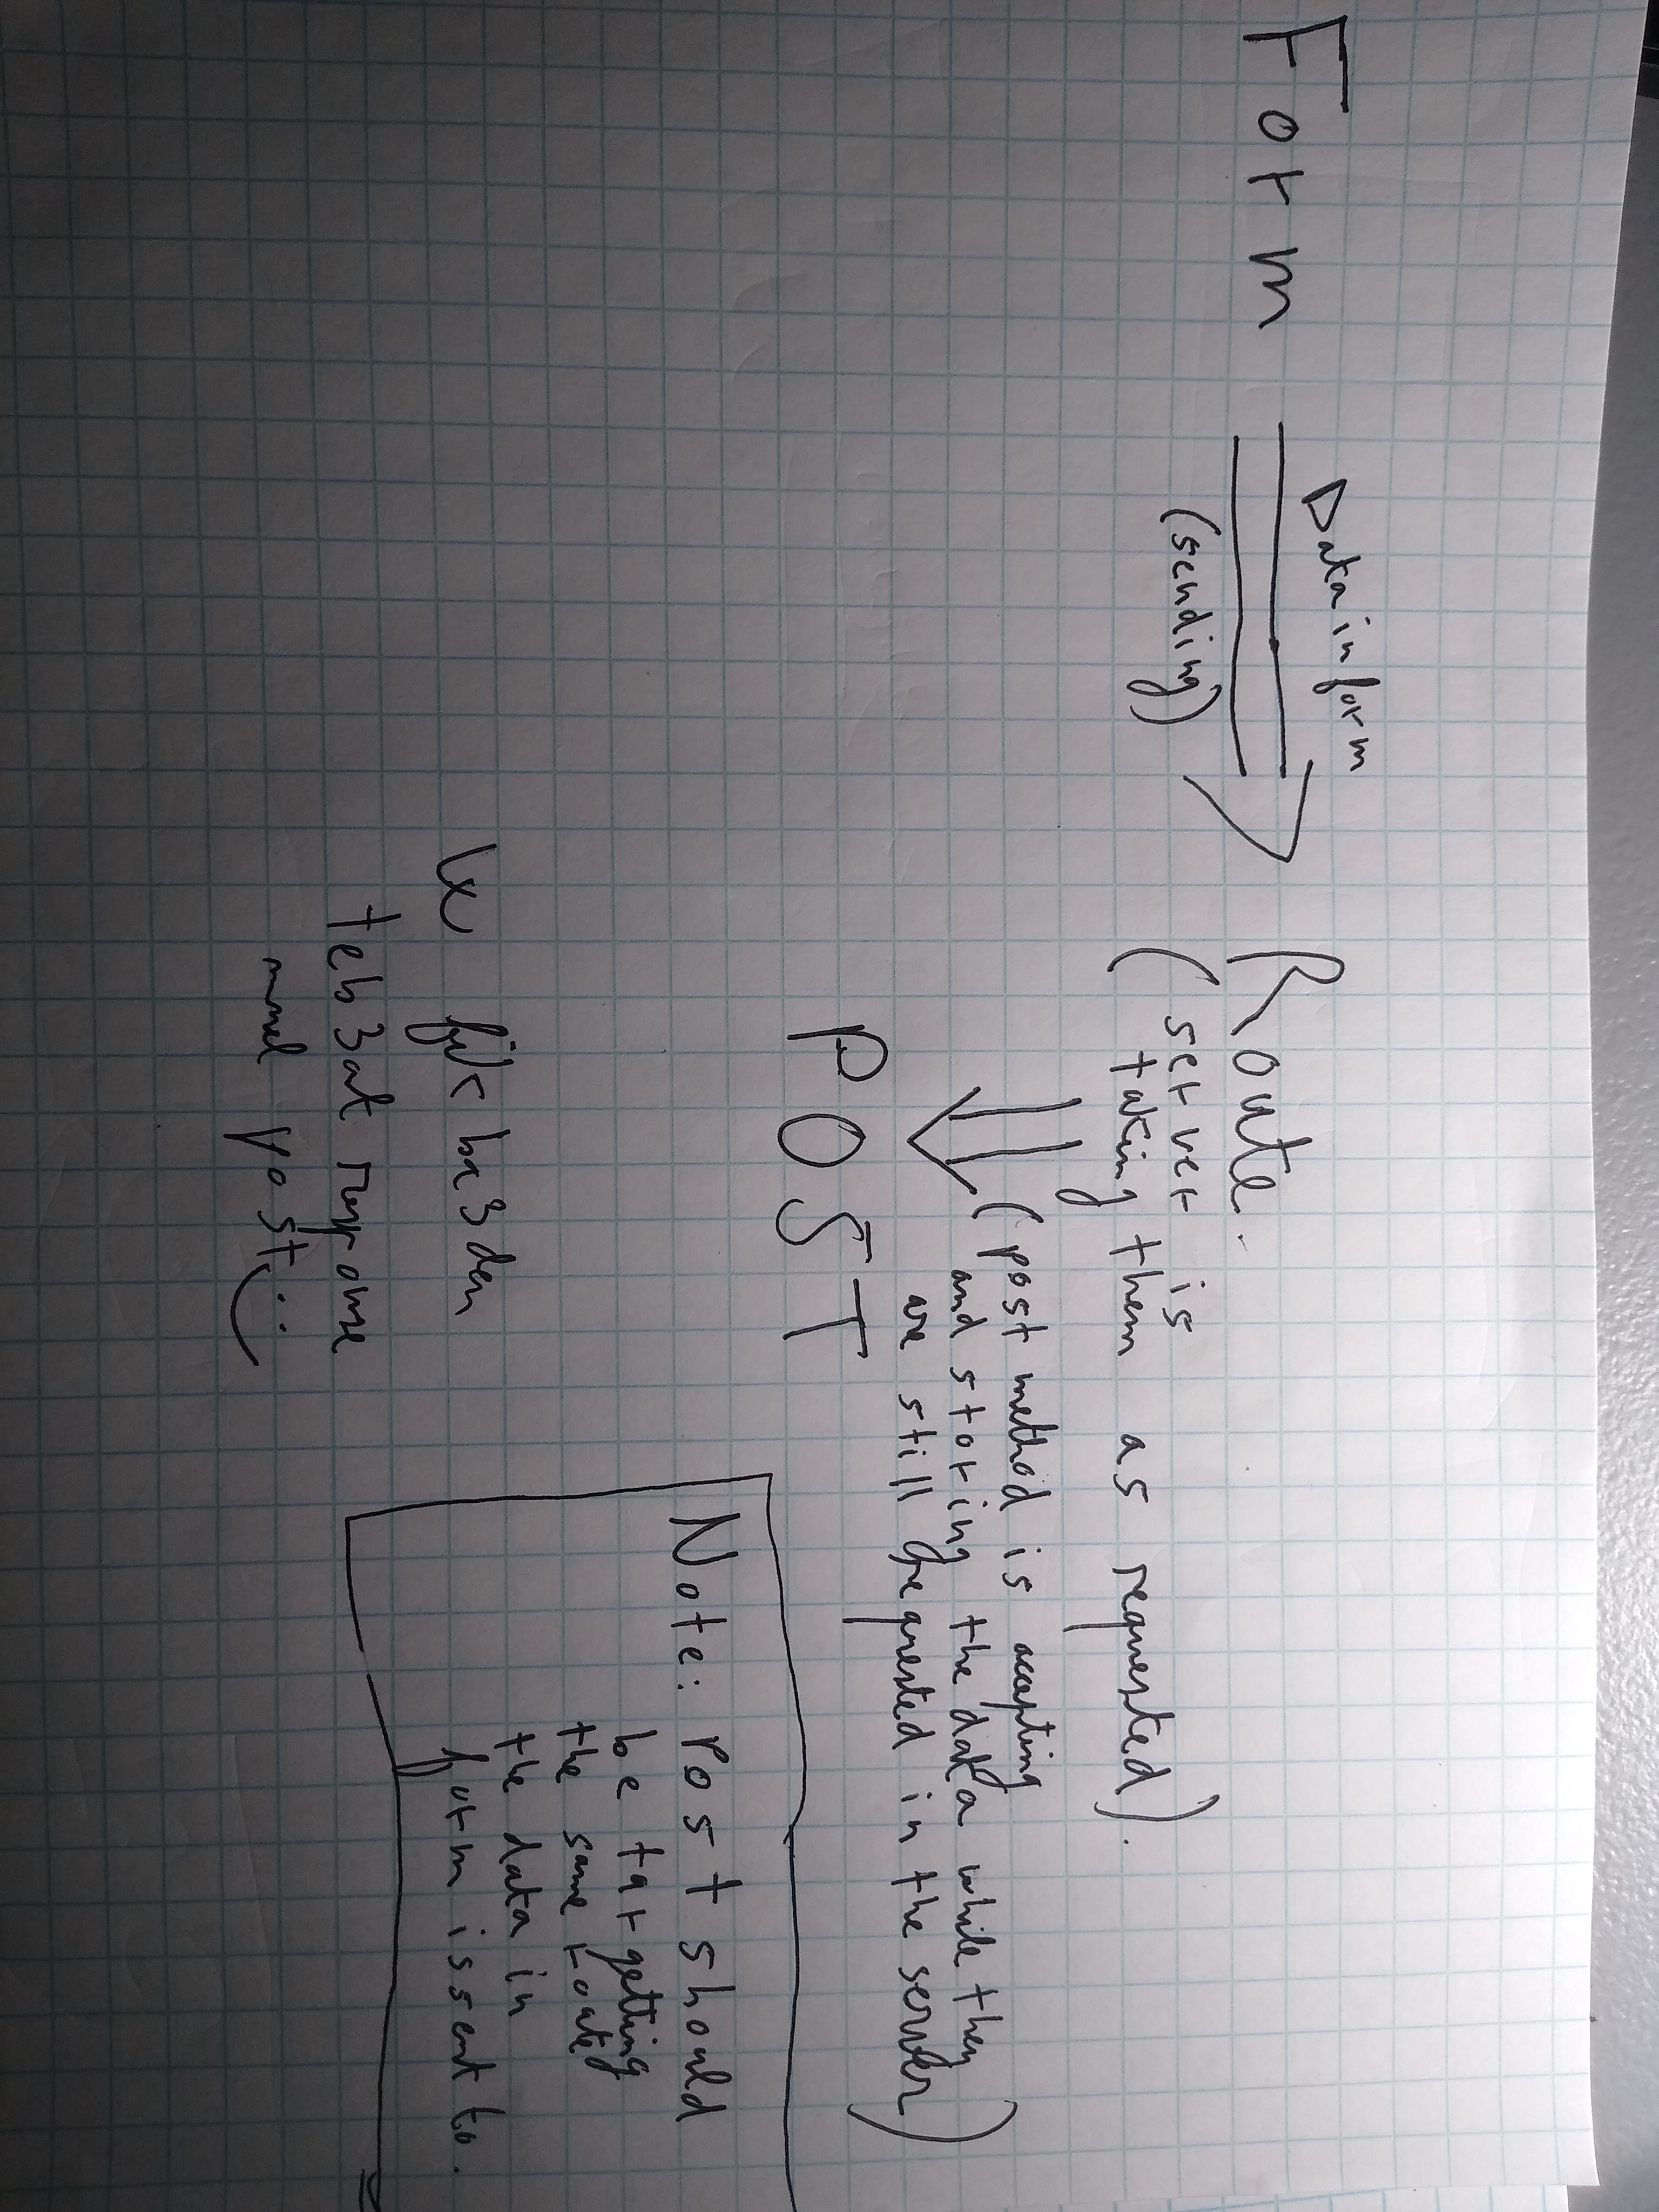 Form
Data in form
(sending)
Route.
(server is
taking them as requested).
(post method is accepting
and storing the data while they
are still requested in the server)
POST
Note: Post should
be targetting
the same route
the data in
form is sent to.
w fik ba3den
teb3at response
mnel post